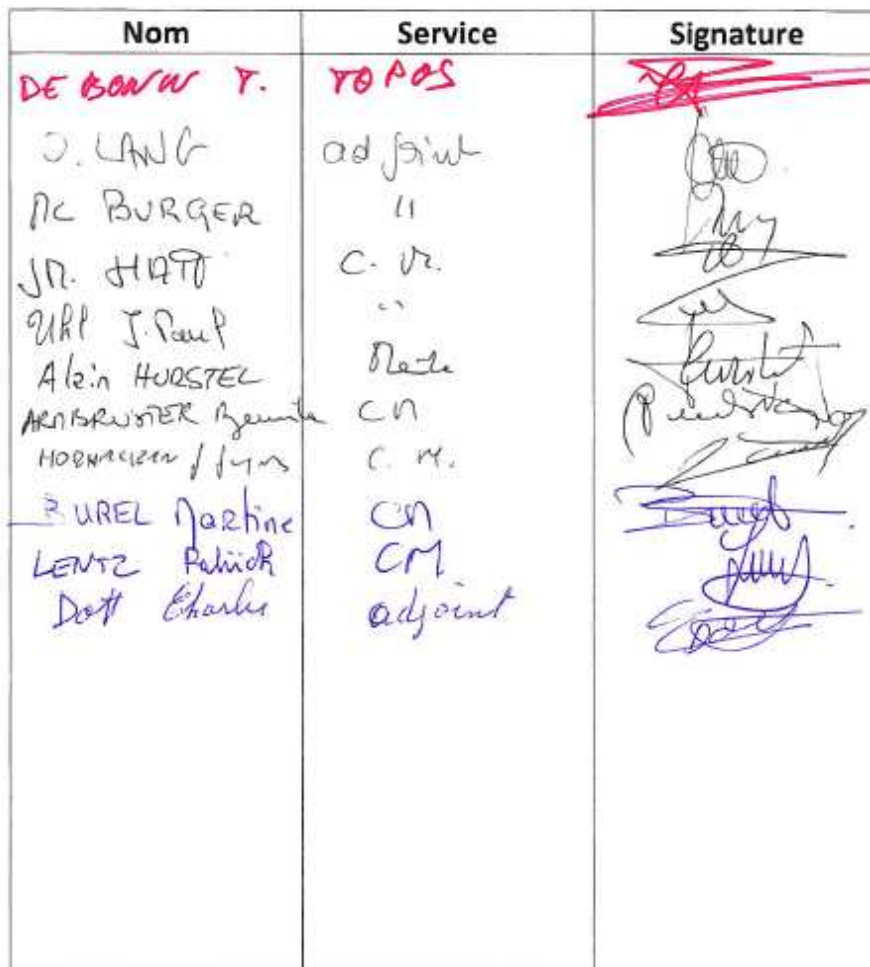 Nom Service Signature
DE BONN T. TOPOS
J. LANG adjoint
MC BURGER "
JM. HATT C. M.
Uhl J. Paul "
Alain HURSTEL Maire
ARMBRUSTER CM
C. M.
BUREL Martine CM
LENTZ Patrick CM
Dott Charles adjoint